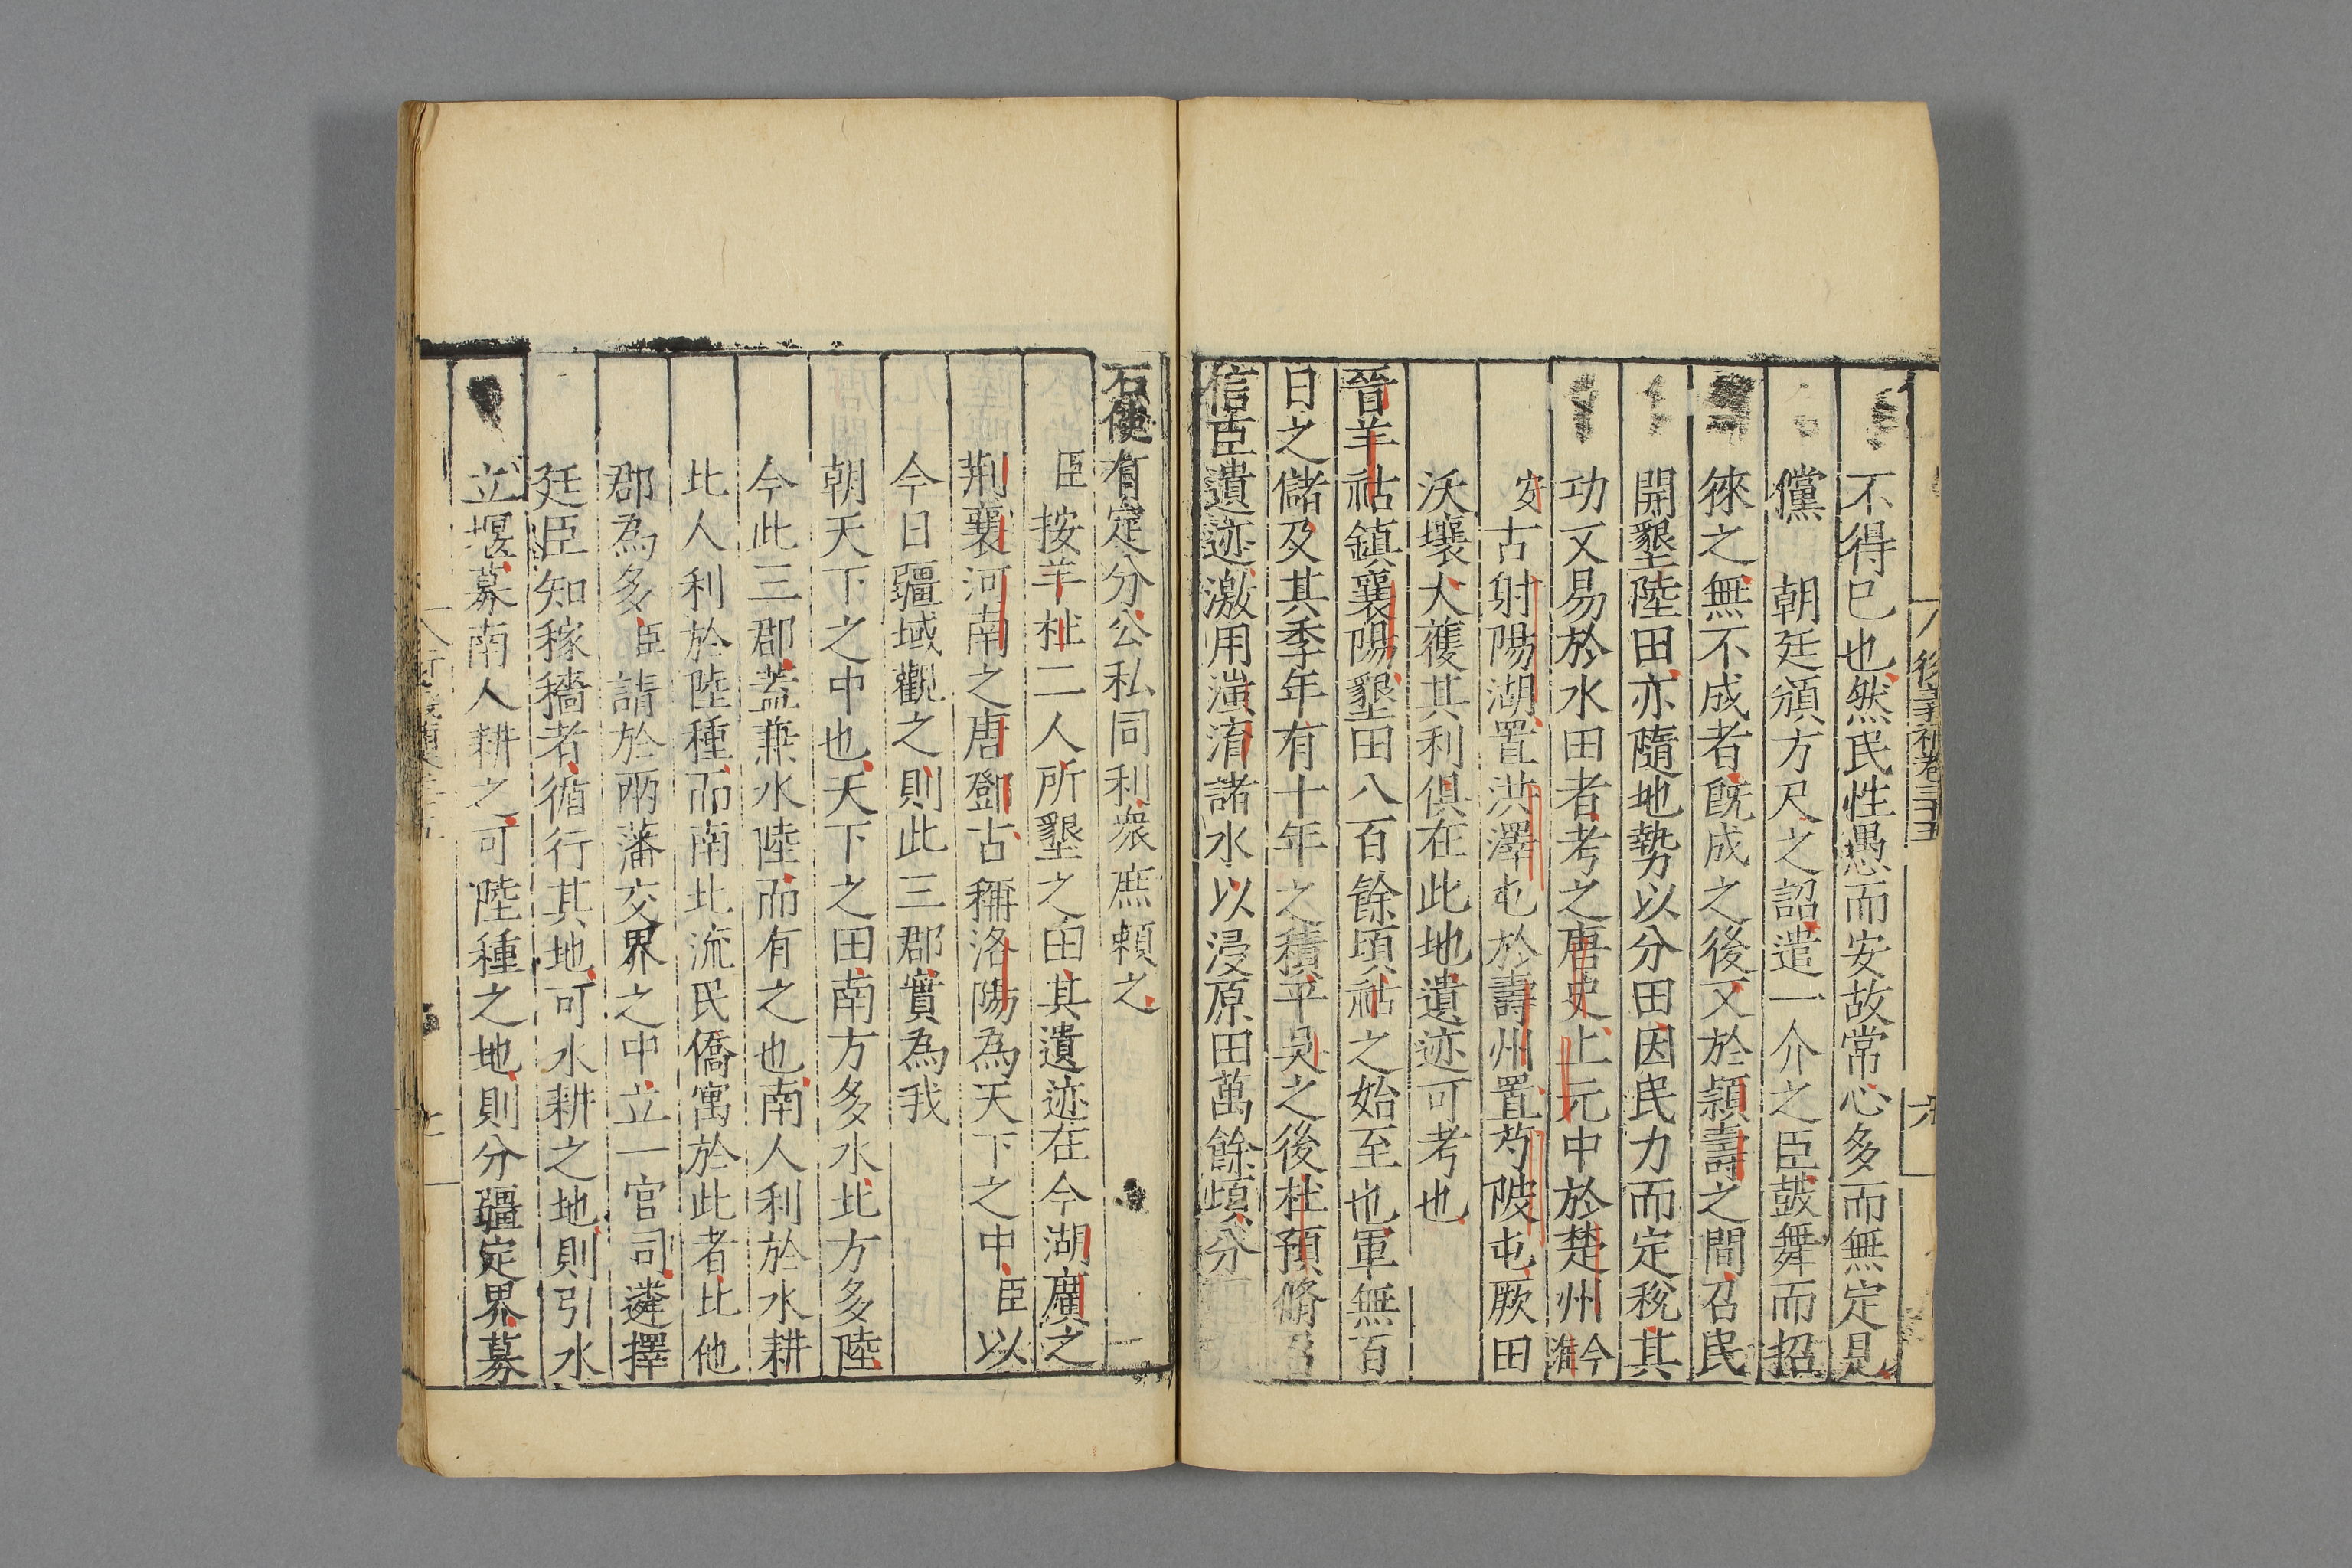 衍義補卷三十五
六
不得已也然民性愚而安故常心多而無定見
儻 朝廷頒方尺之詔遣一介之臣鼓舞而招
徠之無不成者既成之後又於潁壽之間召民
開墾陸田亦隨地勢以分田因民力而定稅其
功又易於水田者考之唐史上元中於楚州今淮
安古射陽湖置洪澤屯於壽州置芍陂屯厥田
沃壤大獲其利俱在此地遺迹可考也
晉羊祜鎮襄陽墾田八百餘頃祜之始至也軍無百
日之儲及其季年有十年之積平吳之後杜預脩召
信臣遺迹激用滍淯諸水以浸原田萬餘頃分
石使有定分公私同利衆庶賴之
臣按羊杜二人所墾之田其遺迹在今湖廣之
荆襄河南之唐鄧古稱洛陽為天下之中臣以
今日疆域觀之則此三郡實為我
朝天下之中也天下之田南方多水北方多陸
今此三郡蓋兼水陸而有之也南人利於水耕
北人利於陸種而南北流民僑寓於此者比他
郡為多臣請於兩藩交界之中立一官司遴擇
廷臣知稼穡者循行其地可水耕之地則引水
立堰募南人耕之可陸種之地則分疆定界募